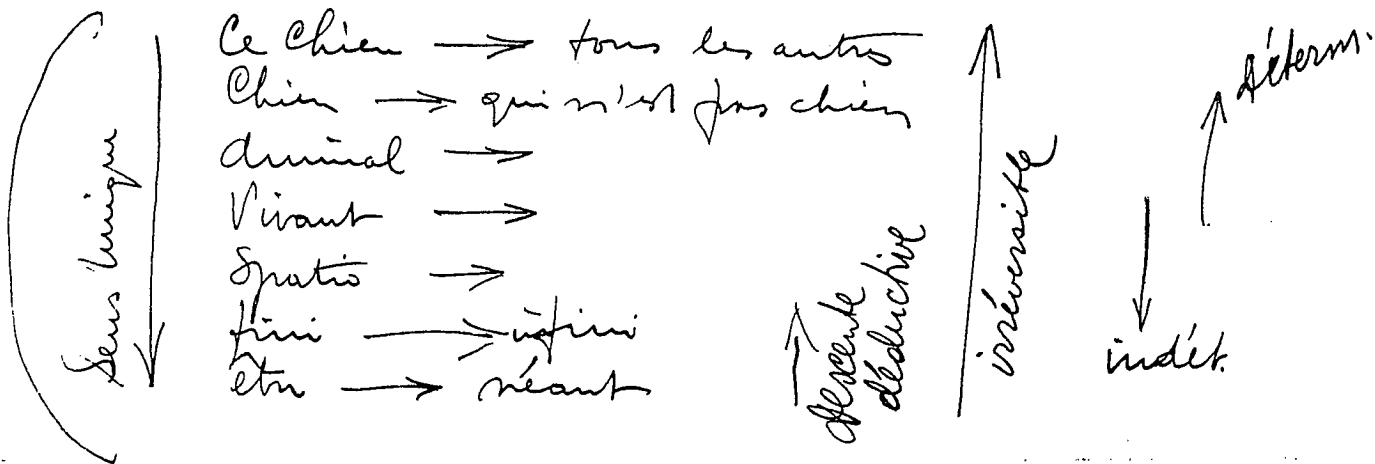 Sens Unique
Ce Chien → tous les autres
Chien → qui n'est pas chien
Animal →
Vivant →
Spatio →
fini → infini
être → néant
descente
déductive
irréversible
déterm.
indét.